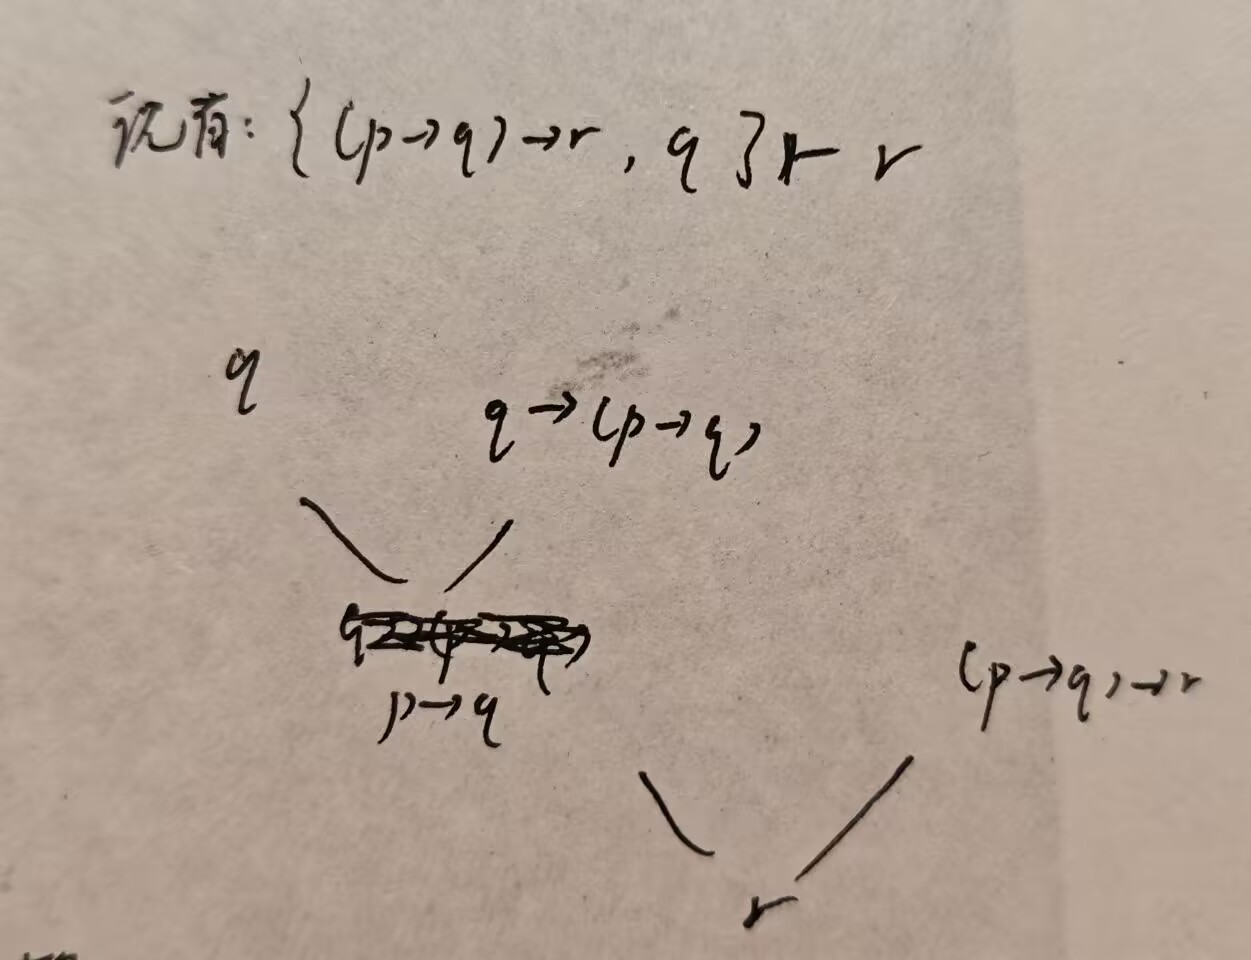 现有: {(p→q)→r, q}⊢ r
q
q→(p→q)
p→q
(p→q)→r
r